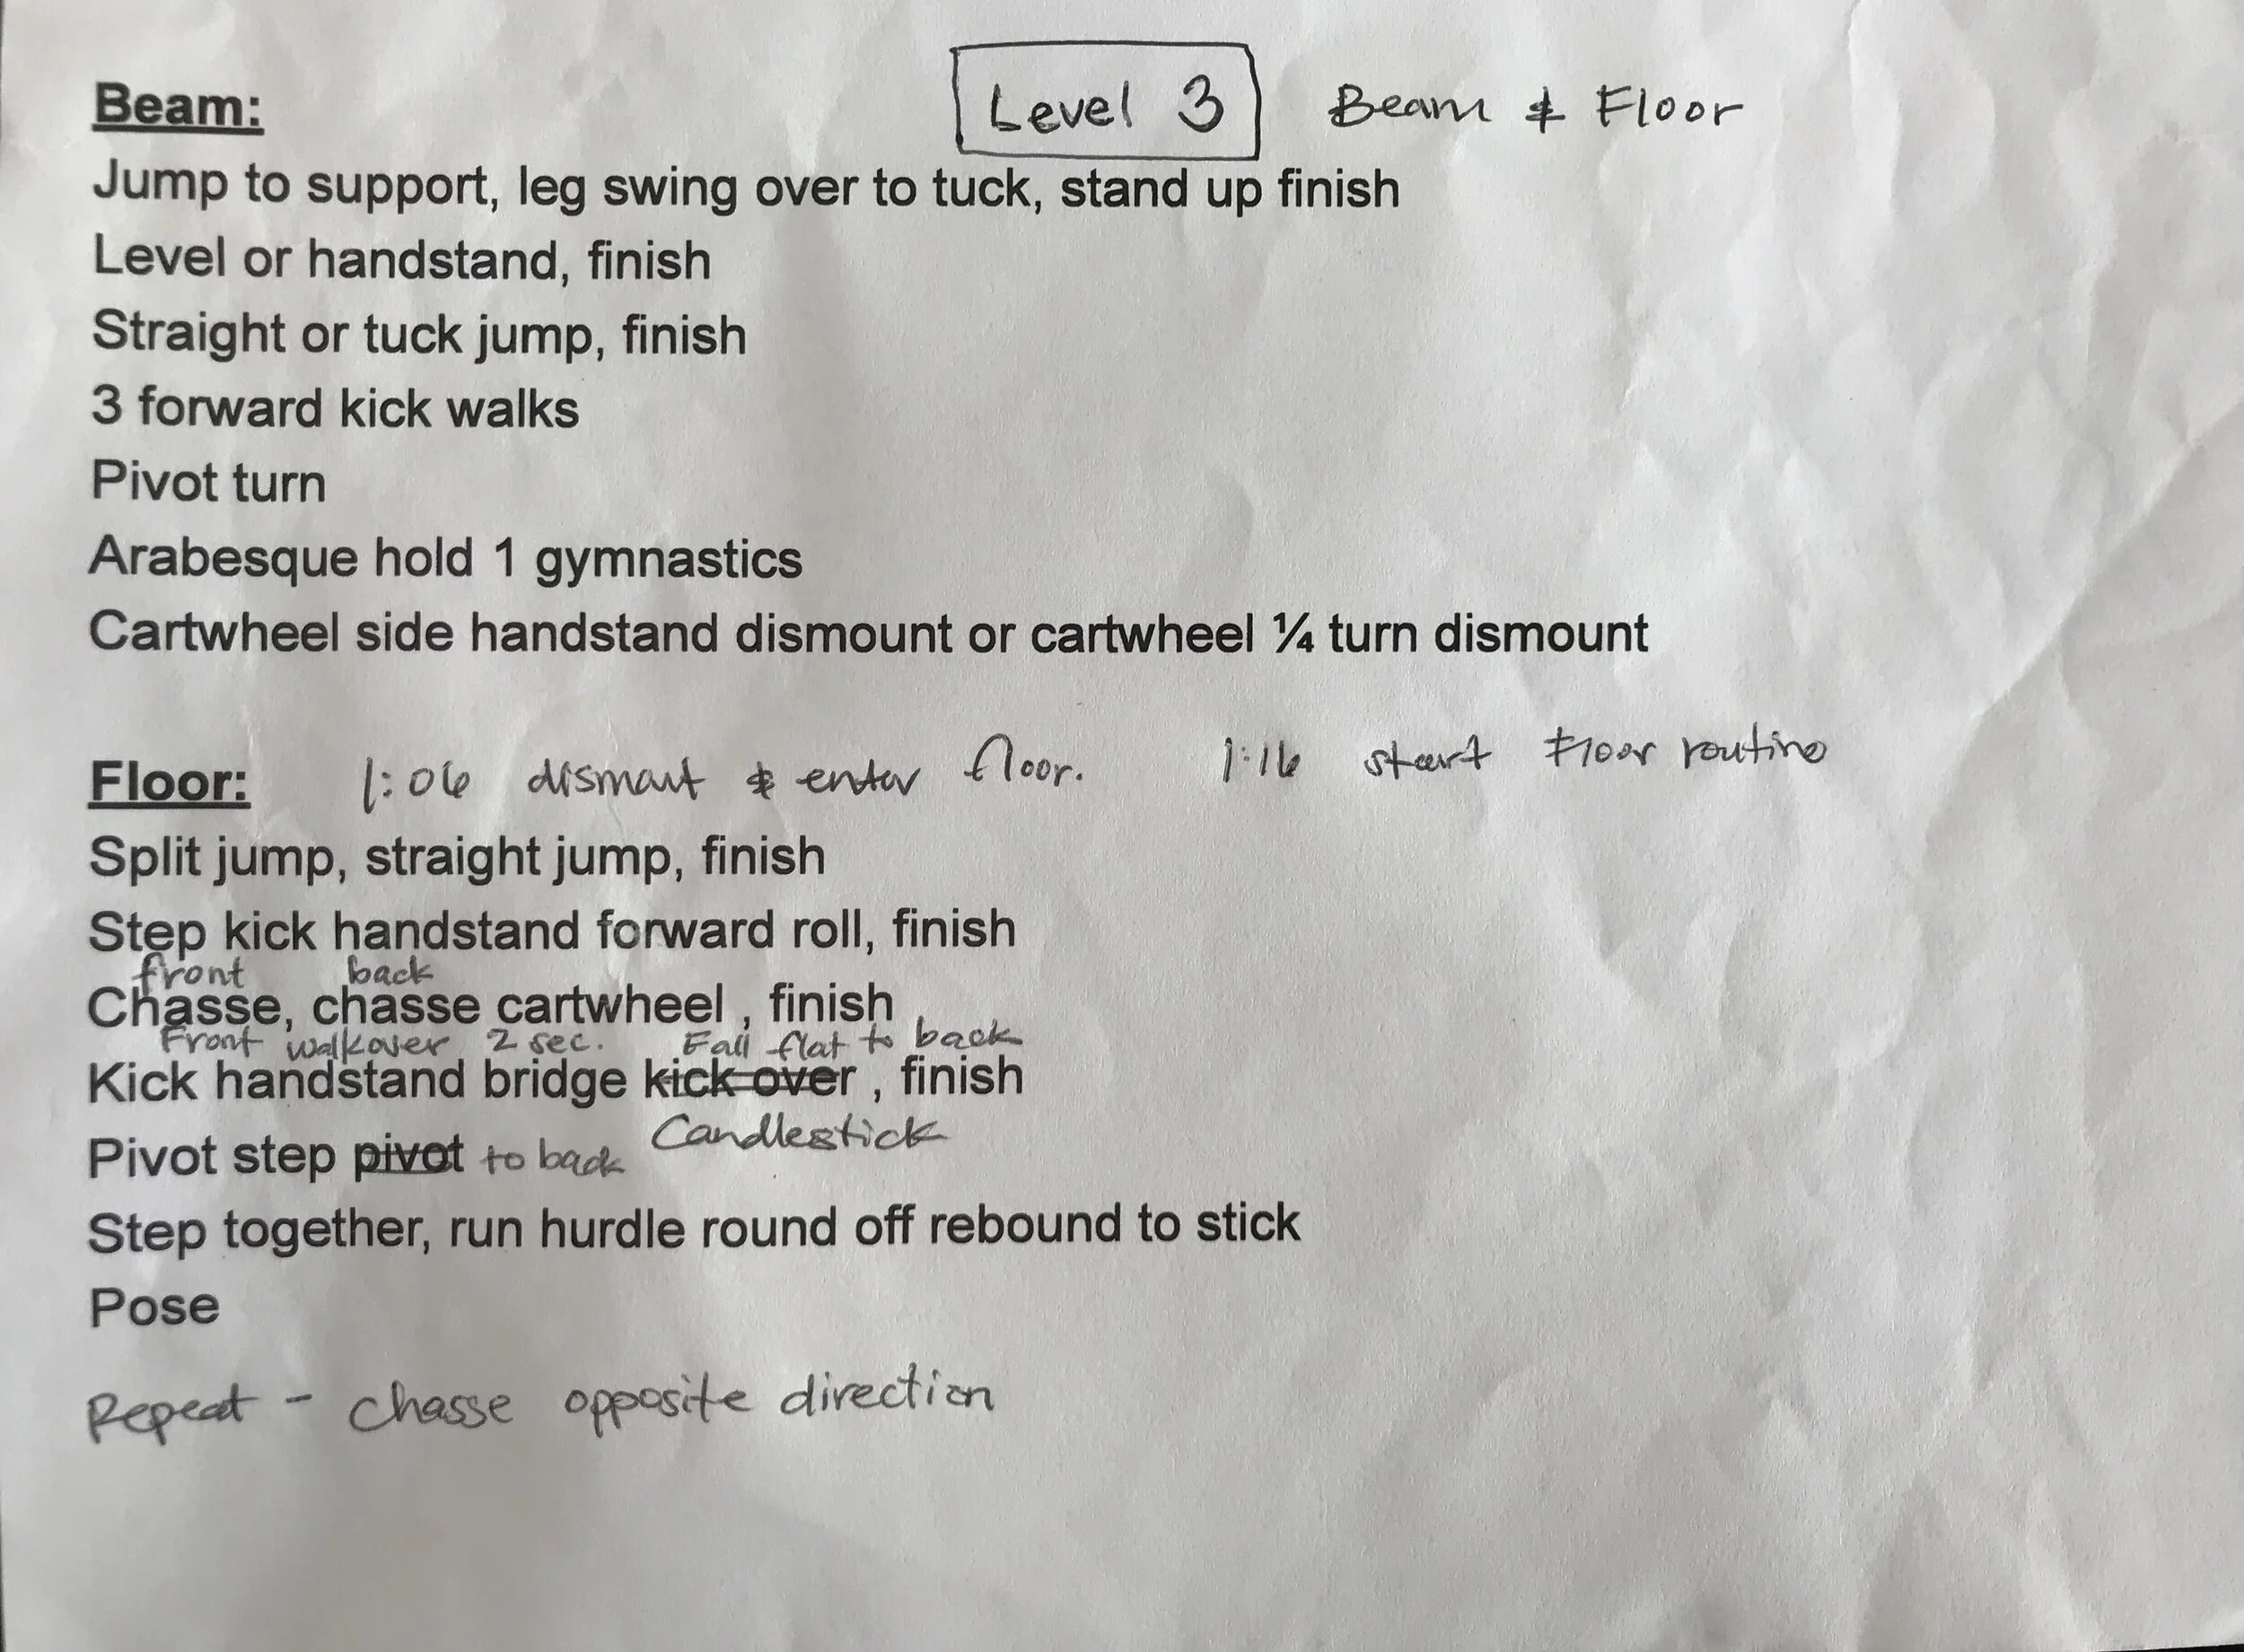 Level 3 Beam & Floor
Beam:
Jump to support, leg swing over to tuck, stand up finish
Level or handstand, finish
Straight or tuck jump, finish
3 forward kick walks
Pivot turn
Arabesque hold 1 gymnastics
Cartwheel side handstand dismount or cartwheel ¼ turn dismount
Floor: 1:06 dismout & enter floor. 1:16 start Floor routine
Split jump, straight jump, finish
Step kick handstand forward roll, finish
front back
Chasse, chasse cartwheel , finish
Front walkover 2 sec. Fall flat to back
Kick handstand bridge kick over , finish
Candlestick
Pivot step pivot to back
Step together, run hurdle round off rebound to stick
Pose
Repeat - chasse opposite direction